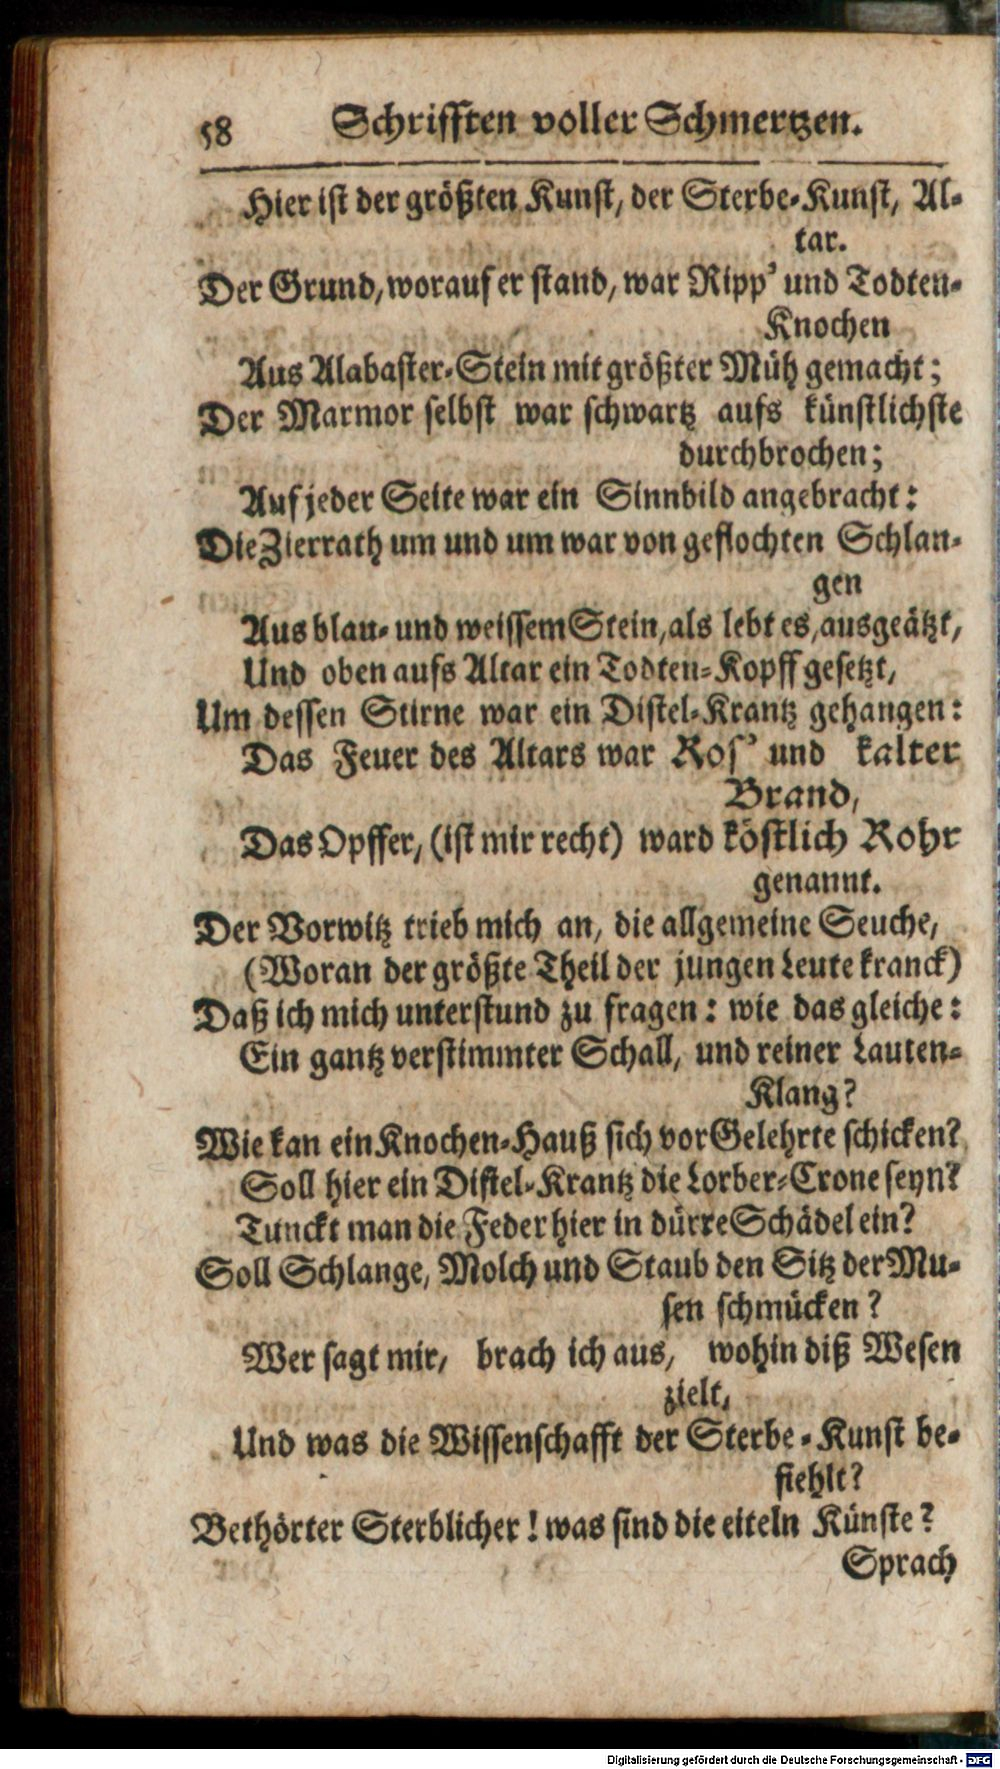 58 Schrifften voller Schmertzen.
Hier ist der größten Kunst, der Sterbe-Kunst, Al-
tar.
Der Grund, worauf er stand, war Ripp' und Todten-
Knochen
Aus Alabaster-Stein mit größter Müh gemacht;
Der Marmor selbst war schwartz aufs künstlichste
durchbrochen;
Auf jeder Seite war ein Sinnbild angebracht:
Die Zierrath um und um war von geflochten Schlan-
gen
Aus blau- und weissem Stein, als lebt es, ausgeätzt,
Und oben aufs Altar ein Todten-Kopff gesetzt,
Um dessen Stirne war ein Distel-Krantz gehangen:
Das Feuer des Altars war Ros' und kalter
Brand,
Das Opffer, (ist mir recht) ward köstlich Rohr
genannt.
Der Vorwitz trieb mich an, die allgemeine Seuche,
(Woran der größte Theil der jungen Leute kranck)
Daß ich mich unterstund zu fragen: wie das gleiche:
Ein gantz verstimmter Schall, und reiner Lauten-
Klang?
Wie kan ein Knochen-Hauß sich vor Gelehrte schicken?
Soll hier ein Distel-Krantz die Lorber-Crone seyn?
Tunckt man die Feder hier in dürre Schädel ein?
Soll Schlange, Molch und Staub den Sitz der Mu-
sen schmücken?
Wer sagt mir, brach ich aus, wohin diß Wesen
zielt,
Und was die Wissenschafft der Sterbe-Kunst be-
fiehlt?
Bethörter Sterblicher! was sind die eiteln Künste?
Sprach
Digitalisierung gefördert durch die Deutsche Forschungsgemeinschaft - DFG